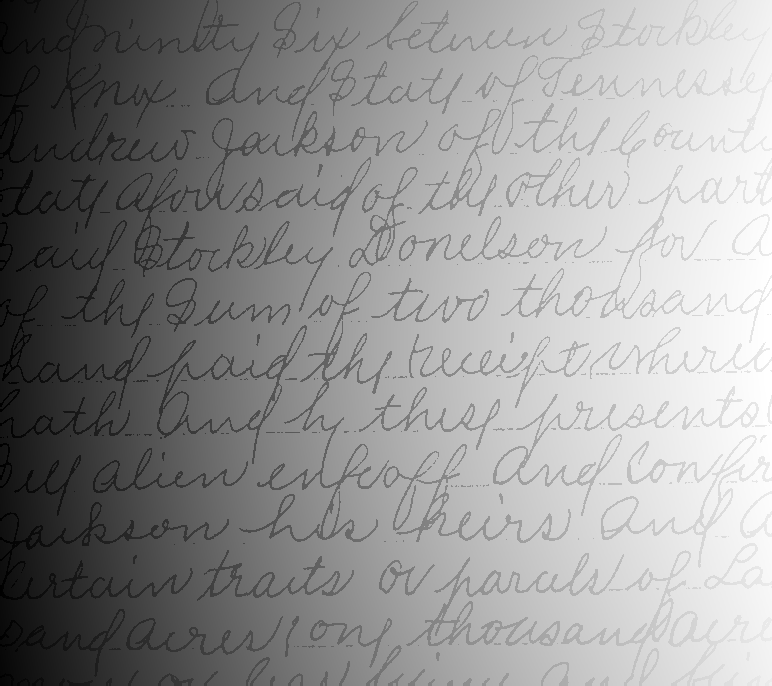 and ninety Six between Stockley
of Knox And State of Tennessey
Andrew Jackson of the Count
State aforesaid of the other part
Said Stockley Donelson for
of the Sum of two thousand
hand paid the receipt where
hath And by these presents
Sell alien enfeoff And Confir
Jackson his heirs And
Certain traits or parcels of La
sand acres one thousand acre
more or less being and